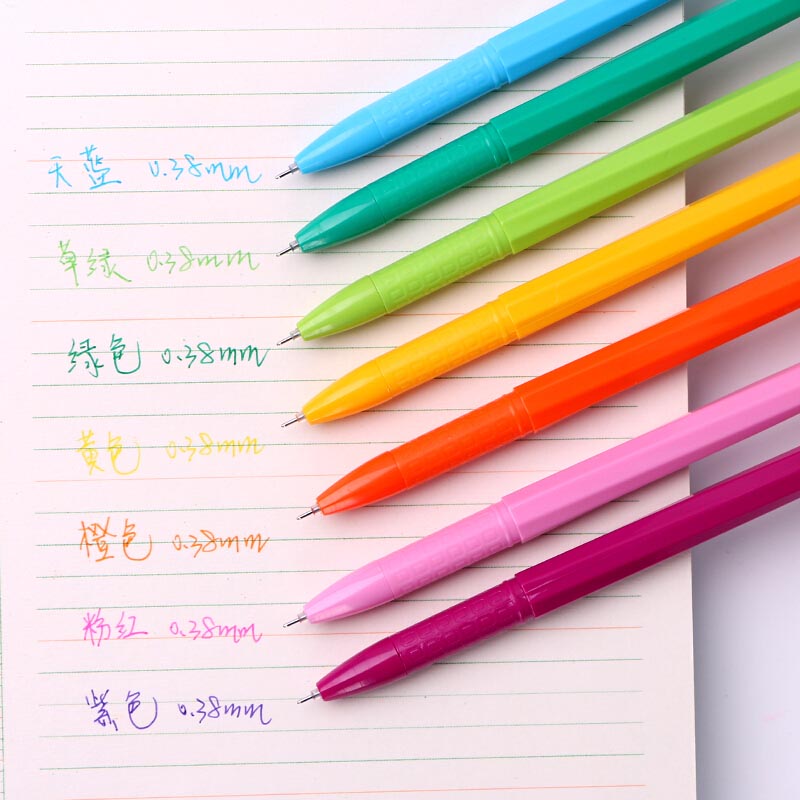 天蓝 0.38mm
草绿 0.38mm
绿色 0.38mm
黄色 0.38mm
橙色 0.38mm
粉红 0.38mm
紫色 0.38mm